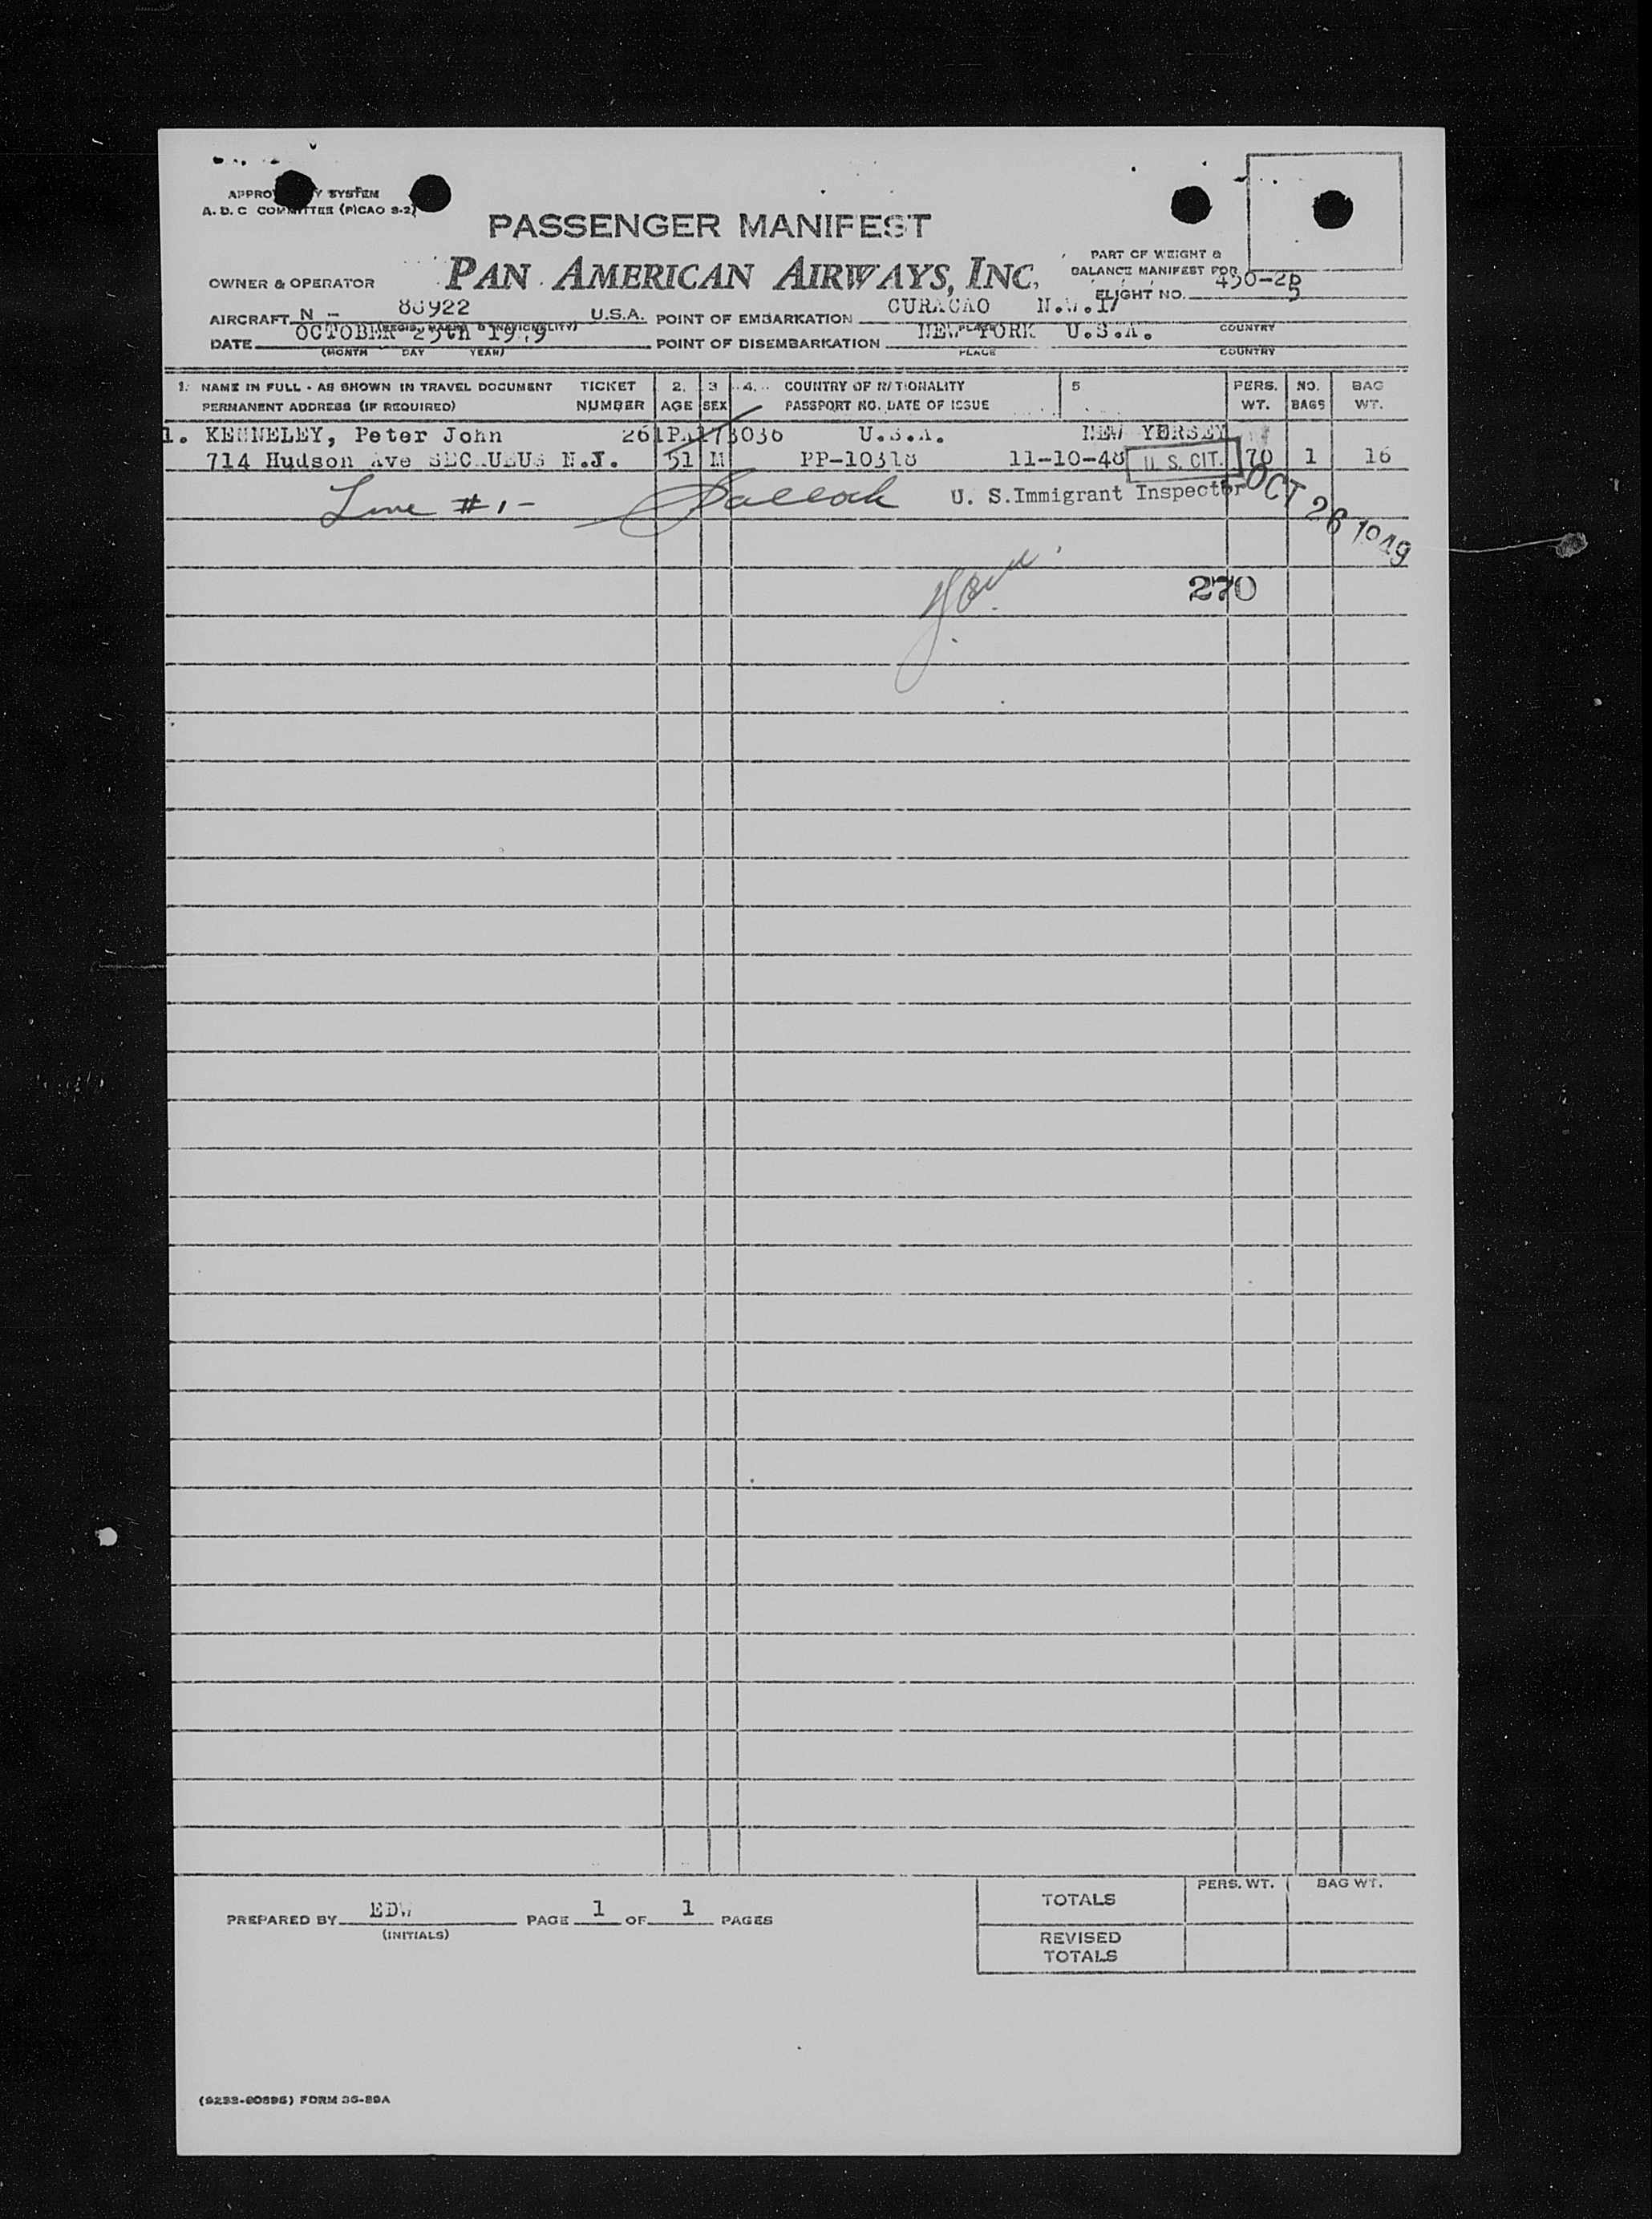 A. D. C COMMITTEE (PICAO S-2)
PASSENGER MANIFEST
PART OF WEIGHT &
BALANCE MANIFEST FOR
OWNER & OPERATOR PAN AMERICAN AIRWAYS, INC.
FLIGHT NO.
AIRCRAFT N - U.S.A. POINT OF EMBARKATION CURACAO
(REGIS. MARKS & NATIONALITY) PLACE COUNTRY
DATE OCTOBER POINT OF DISEMBARKATION NEW YORK U.S.A.
(MONTH DAY YEAR) PLACE COUNTRY
1. NAME IN FULL - AS SHOWN IN TRAVEL DOCUMENT TICKET 2. 3 4. COUNTRY OF NATIONALITY 5 PERS. NO. BAG
PERMANENT ADDRESS (IF REQUIRED) NUMBER AGE SEX PASSPORT NO. DATE OF ISSUE WT. BAGS WT.
1. KENNELEY, Peter John U.S.A. NEW
714 Hudson Ave N.J. 51 M PP-10318 11-10-48 U. S. CIT. 70 1 16
Line #1- U. S.Immigrant Inspector OCT 26 1949
270
TOTALS PERS. WT. BAG WT.
PREPARED BY EDW PAGE 1 OF 1 PAGES
(INITIALS)
REVISED
TOTALS
FORM 36-89A